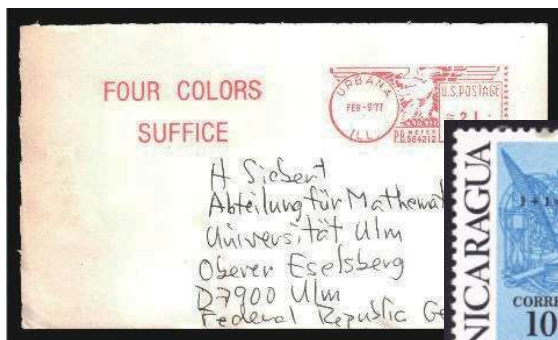 FOUR COLORS
SUFFICE
URBANA
FEB-9'77
ILL.
U.S. POSTAGE
21
P.B. METER
504212
H Siebert
Abteilung für Mathemat
Universität Ulm
Oberer Eselsberg
D7900 Ulm
Federal Republic Ge
NICARAGUA
1+1
CORRE
10